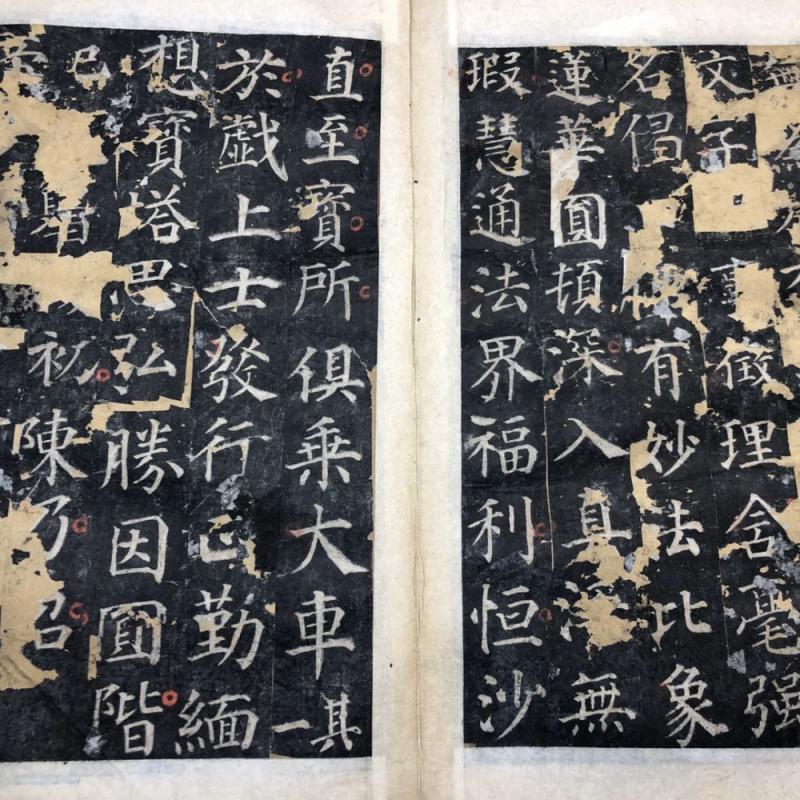 文字事徵理含毫强
名偈有妙法比象
蓮華圓頓深入真無
瑕慧通法界福利恒沙
直至寶所俱乗大車其一
於戲上士發行正勤緬
想寶塔思弘勝因圓階
已初陳乃